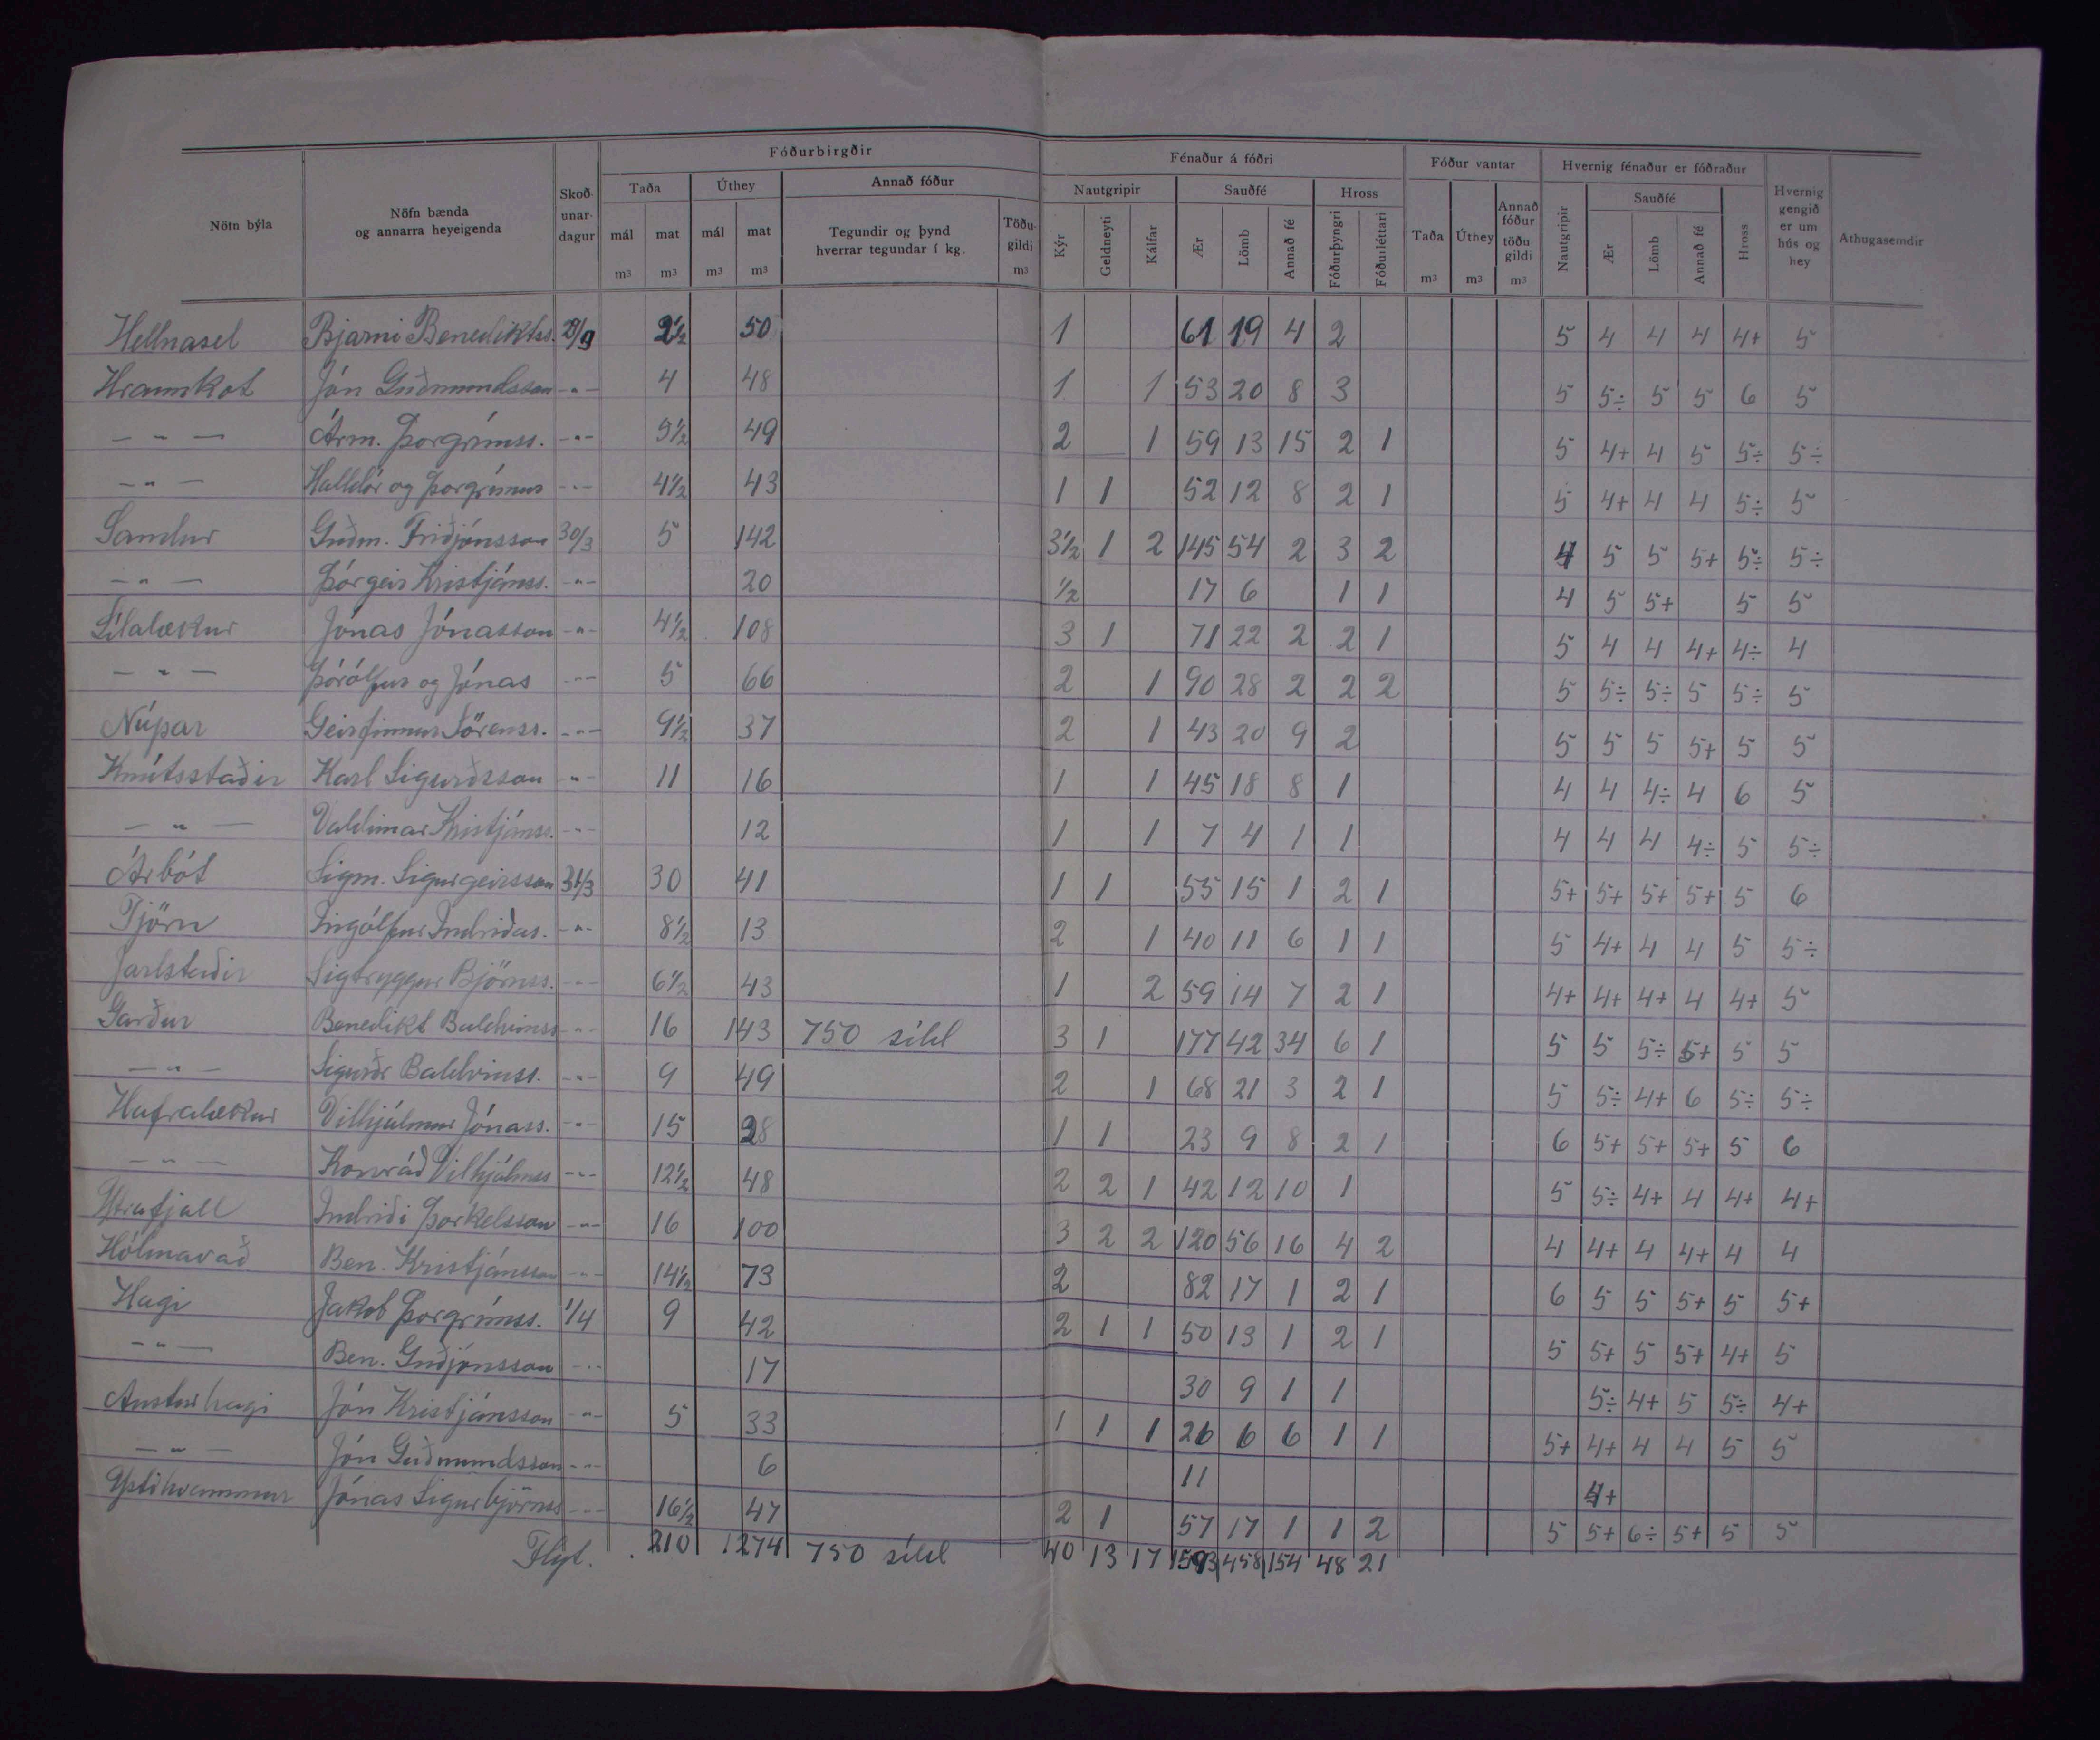 Fóðurbirgðir Fénaður á fóðri Fóður vantar Hvernig fénaður er fóðraður
Nöfn býla Nöfn bænda og annarra heyeigenda Skoðunardagur Taða Úthey Annað fóður Nautgripir Sauðfé Hross Taða Úthey Annað fóður töðu gildi Nautgripir Sauðfé Hross Hvernig gengið er um hús og hey Athugasemdir
mál mat mál mat Tegundir og þynd hverrar tegundar í kg. Töðugildi Kýr Geldneyti Kálfar Ær Lömb Annað fé Fóðurþyngri Fóðurléttari Ær Lömb Annað fé
m³ m³ m³ m³ m³ m³ m³ m³
Hellnasel Bjarni Benediktss. 2½ 50 1 61 19 4 2 5 4 4 4 4+ 5
Hraunkot Jón Guðmundsson -"- 4 48 1 1 53 20 8 3 5 5÷ 5 5 6 5
— " — Árm. Þorgrímss. -"- 5½ 49 2 1 59 13 15 2 1 5 4+ 4 5 5÷ 5÷
— " — Halldór og Þorgrímur -"- 4½ 43 1 1 52 12 8 2 1 5 4+ 4 4 5÷ 5
Sandur Guðm. Friðjónsson 30/3 5 142 3½ 1 2 145 54 2 3 2 4 5 5 5+ 5÷ 5÷
— " — Þórgeir Kristjánss. -"- 20 ½ 17 6 1 1 4 5 5+ 5 5
Sílalækur Jónas Jónasson -"- 4½ 108 3 1 71 22 2 2 1 5 4 4 4+ 4÷ 4
— " — Þórólfur og Jónas -"- 5 66 2 1 90 28 2 2 2 5 5÷ 5÷ 5 5÷ 5
Núpar Geirfinnur Sörenss. -"- 9½ 37 2 1 43 20 9 2 5 5 5 5+ 5 5
Knútsstaðir Karl Sigurðsson -"- 11 16 1 1 45 18 8 1 4 4 4÷ 4 6 5
— " — Valdimar Kristjánss. -"- 12 1 1 7 4 1 1 4 4 4 4÷ 5 5÷
Árbót Sigm. Sigurgeirsson 31/3 30 41 1 1 55 15 1 2 1 5+ 5+ 5+ 5+ 5 6
Tjörn Ingólfur Indriðas. -"- 8½ 13 2 1 40 11 6 1 1 5 4+ 4 4 5 5÷
Jarlstaðir Sigtryggur Björnss. -"- 6½ 43 1 2 59 14 7 2 1 4+ 4+ 4+ 4 4+ 5
Garður Benedikt Baldvinss -"- 16 143 750 síld 3 1 177 42 34 6 1 5 5 5÷ 5+ 5 5
— " — Sigurðr Baldvinss. -"- 9 49 2 1 68 21 3 2 1 5 5÷ 4+ 6 5÷ 5÷
Hafralækur Vilhjálmur Jónass. -"- 15 28 1 1 23 9 8 2 1 6 5+ 5+ 5+ 5 6
— " — Konráð Vilhjálmss -"- 12½ 48 2 2 1 42 12 10 1 5 5÷ 4+ 4 4+ 4+
Ytrafjall Indriði Þorkelsson -"- 16 100 3 2 2 120 56 16 4 2 4 4+ 4 4+ 4 4
Hólmavað Ben. Kristjánsson -"- 14½ 73 2 82 17 1 2 1 6 5 5 5+ 5 5+
Hagi Jakob Þorgrímss. 1/4 9 42 2 1 1 50 13 1 2 1 5 5+ 5 5+ 4+ 5
— " — Ben. Guðjónsson -"- 17 30 9 1 1 5÷ 4+ 5 5÷ 4+
Austurhagi Jón Kristjánsson -"- 5 33 1 1 1 26 6 6 1 1 5+ 4+ 4 4 5 5
— " — Jón Guðmundsson -"- 6 11 4+
Ystihvammur Jónas Sigurbjörnss -"- 16½ 47 2 1 57 17 1 1 2 5 5+ 6÷ 5+ 5 5
Flyt. 210 1274 750 síld 40 13 17 1593 458 154 48 21